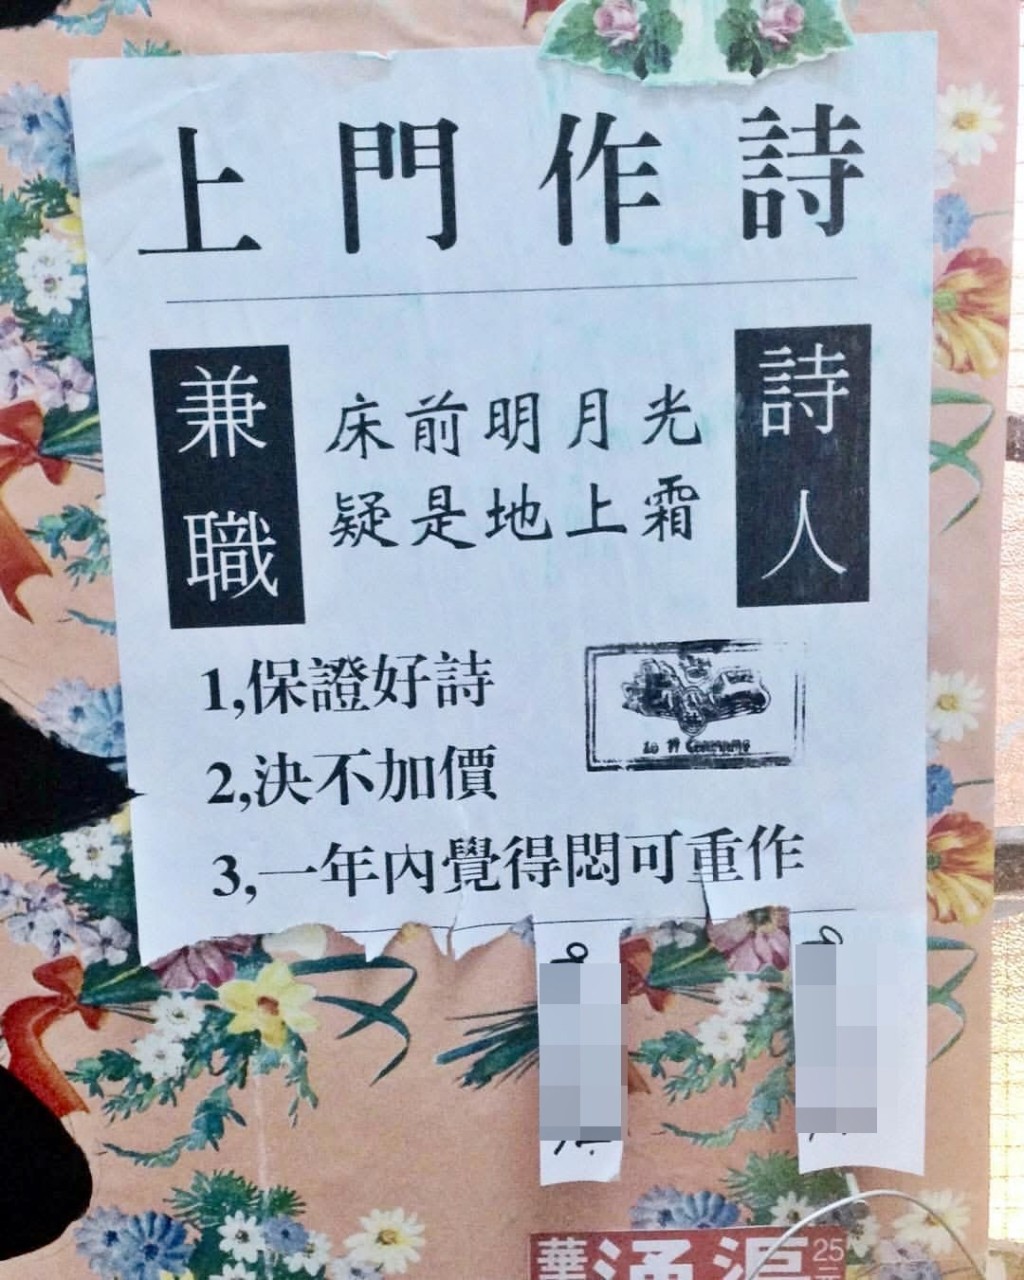 上門作詩
兼職
床前明月光
疑是地上霜
詩人
1,保證好詩
2,決不加價
3,一年內覺得悶可重作
華
25